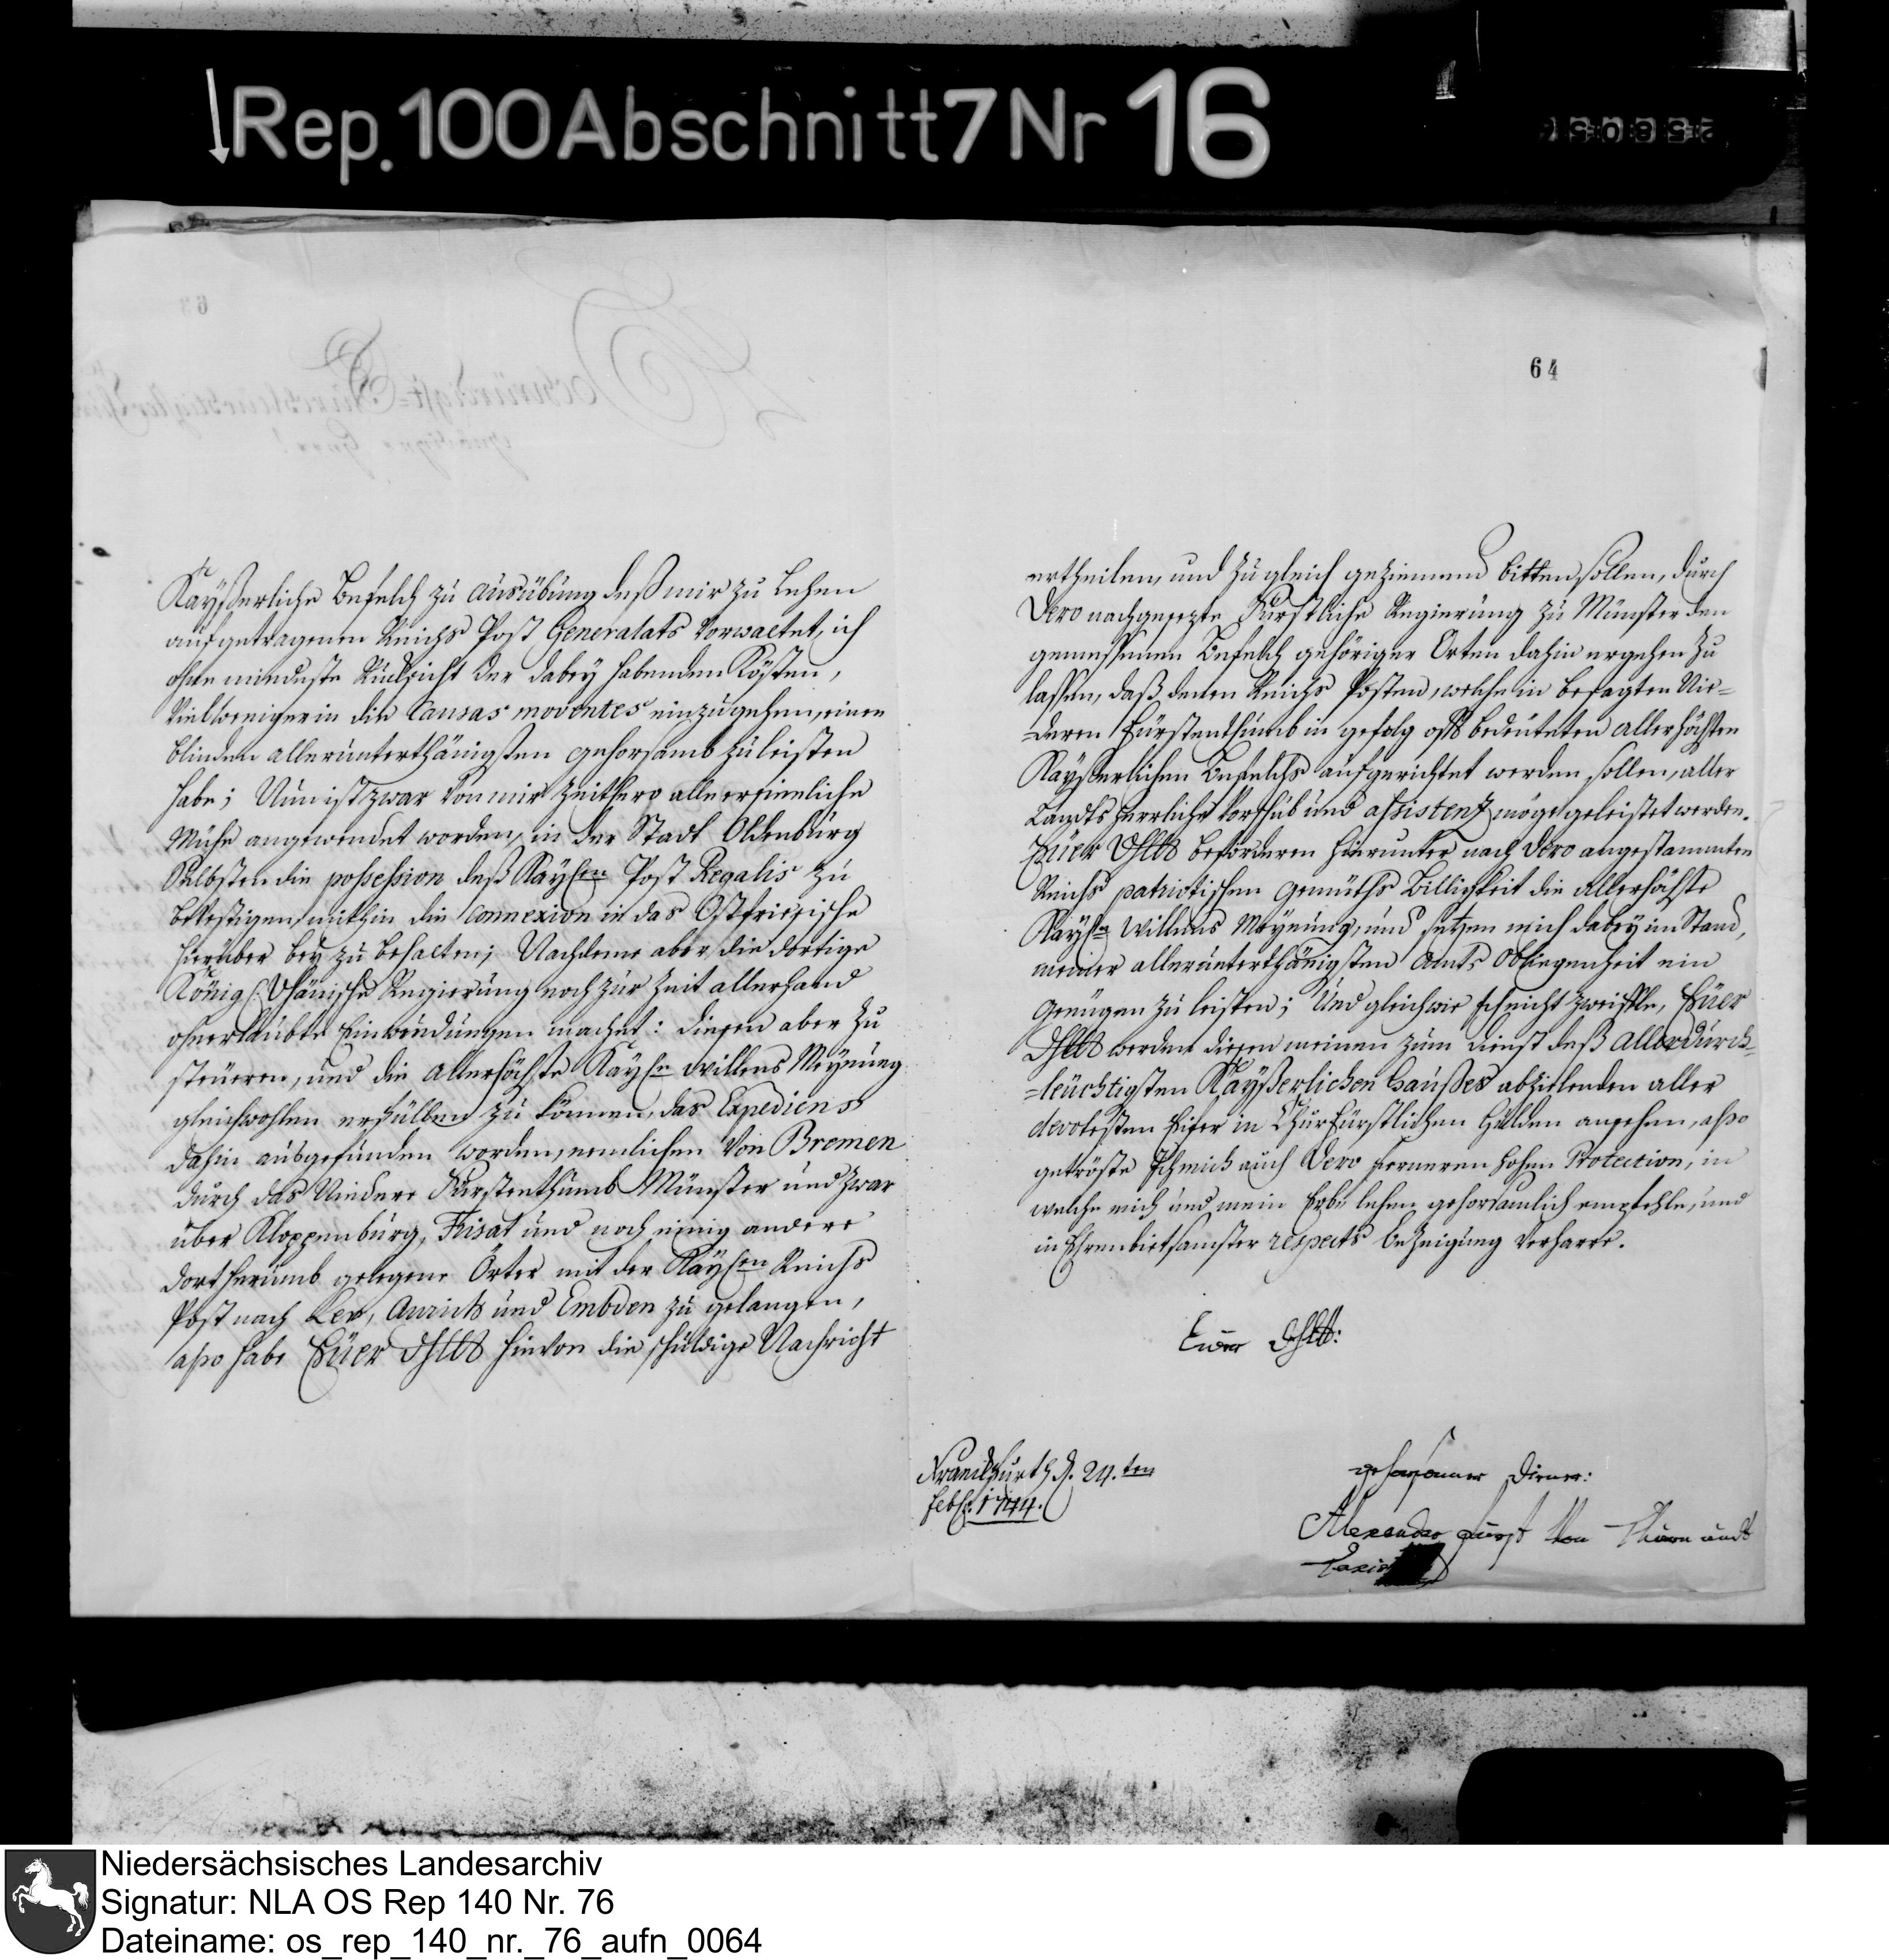 Rep. 100 Abschnitt 7 Nr 16
64
Kayßerliche Befelch zu ausübung deß mir zu Lehen
aufgetragenen Reichs Post Generalats vorwaltet, ich
ohne mindeste Rücksicht der dabey habenden Kösten,
Vielweniger in die Causas moventes einzugehen, einen
blinden allerunterthänigsten gehorsamb zu leisten
habe; Nun ist zwar von mir zeithero alle ersinnliche
Mühe angewendet worden, in der Stadt Oldenburg
Selbsten die possession deß Kayßen Post Regalis zu
bevestigen mithin die Connexion in das Ostfriesische
hierüber bey zu behalten; Nachdeme aber die dortige
Königl. Dänische Regierung noch zur Zeit allerhand
ohnerlaubte Einwendungen machet: diesen aber zu
steüeren, und die allerhöchste Kayßn willens Meynung
gleichwohlen erfüllen zu können, das Expediens
dahin ausgefunden worden, nemlichen von Bremen
durch das Niedere Fürstenthumb Münster und zwar
über Kloppenburg, Frisat und noch einig andere
dortherumb gelegene Örter mit der Kayßen Reichs
Post nach Ler, Aurich und Embden zu gelangen,
also habe Eüer Dhltt hievon die schuldige Nachricht
ertheilen, und zu gleich geziemend bitten sollen, durch
Dero nachgesezte Fürstliche Regierung zu Münster den
gemessenen Befelch gehöriger Orten dahin ergehen zu
lassen, daß denen Reichs Posten, welche in besagten Nie=
=deren Fürstenthumb in gefolg offt bedeüteten allerhöchsten
Kayßerlichen Befelchs aufgerichtet werden sollen, aller
Landtsherrliche Vorschub und assistenz möge geleistet werden.
Eüer Dhltt beförderen hierunter nach Dero angestammten
Reichs patriotischen gemüths Billigkeit die Allerhöchste
Kayßn willens Meynung, und setzen mich dabey im Stand,
meiner allerunterthänigsten Amts Obliegenheit ein
genügen zu leisten; Und gleichwie ich nicht zweiffle, Eüer
Dhltt werden diesen meinen zum dienst deß Allerdurch=
=leüchtigsten Kayßerlichen Haußes abzielenden aller
devotesten Eifer in Churfürstlichen Hulden ansehen, also
getröste Ich mich auch Dero ferneren hohen Protection, in
welche mich und mein Erb lehen gehorsamlich empfehle, und
in Ehrenbietsamster respects bezeigung verharre.
Euer Dhltt:
Franckfurth d. 24.ten
febr. 1744.
gehorsamer Diener:
Alexander fürst von Thurn undt
Taxis
Niedersächsisches Landesarchiv
Signatur: NLA OS Rep 140 Nr. 76
Dateiname: os_rep_140_nr._76_aufn_0064